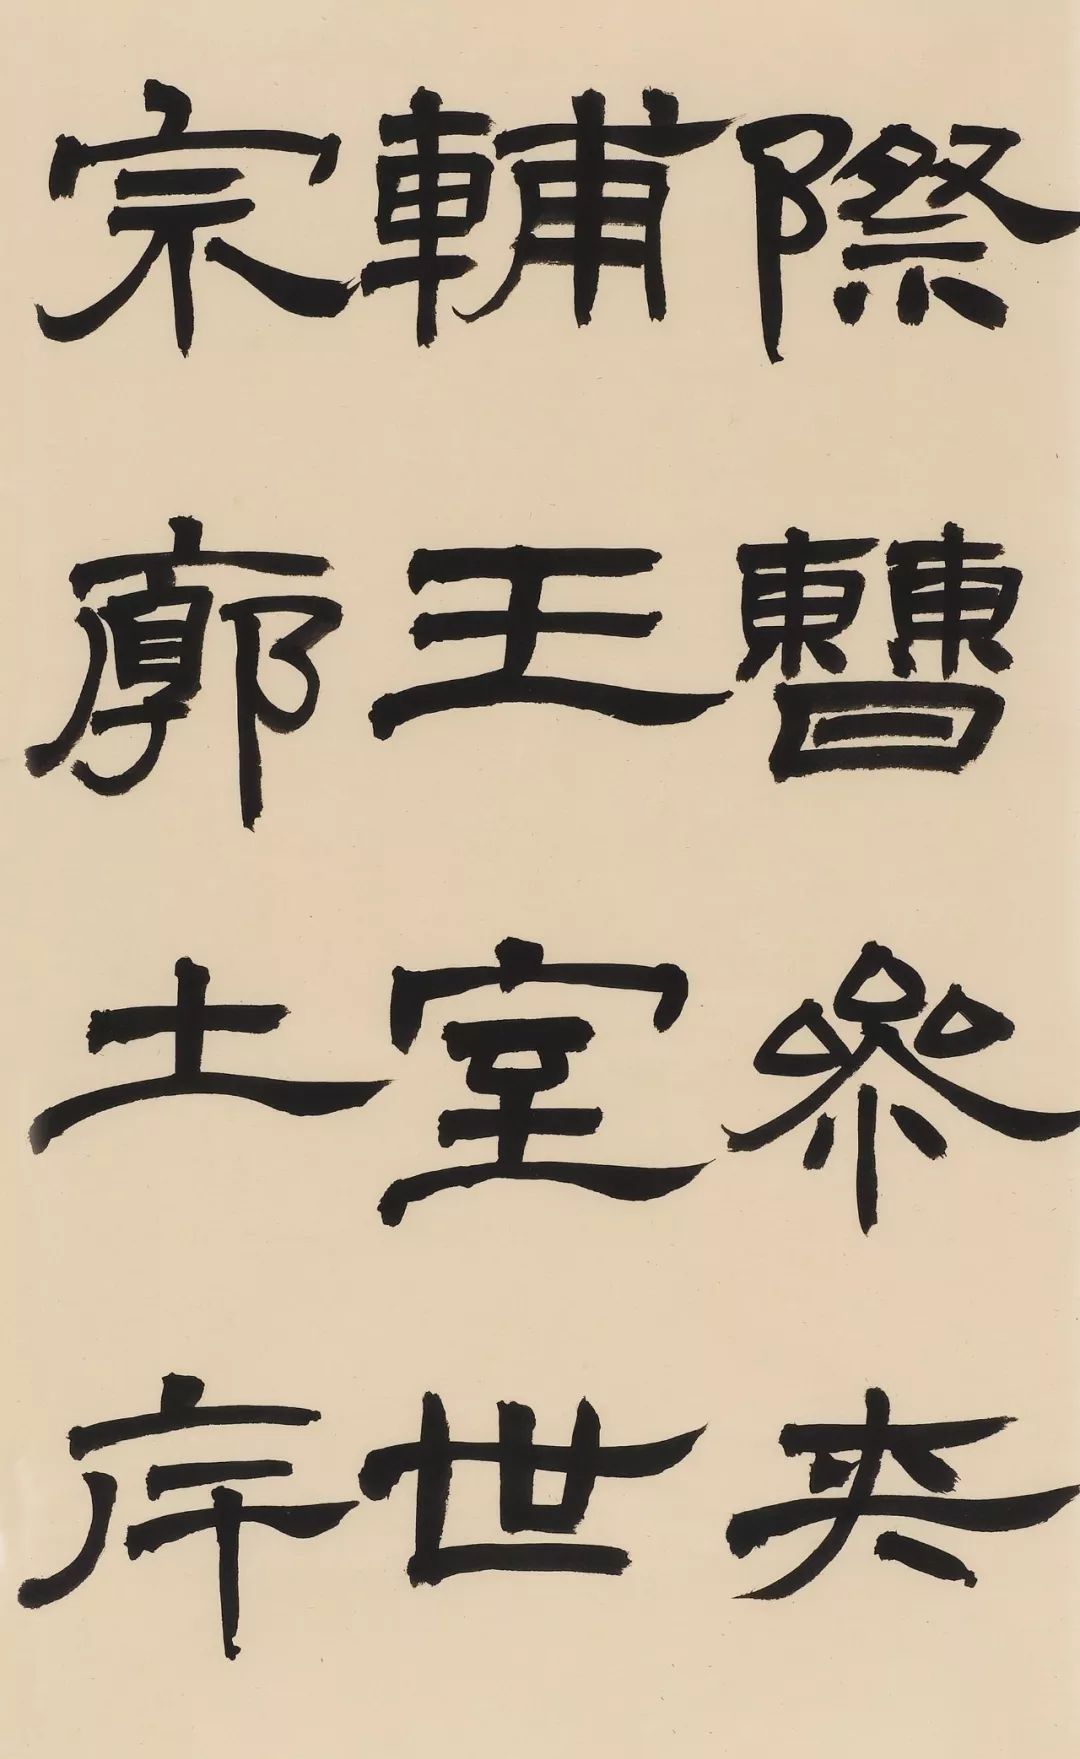 際曹參夾
輔王室世
宗廓土斥